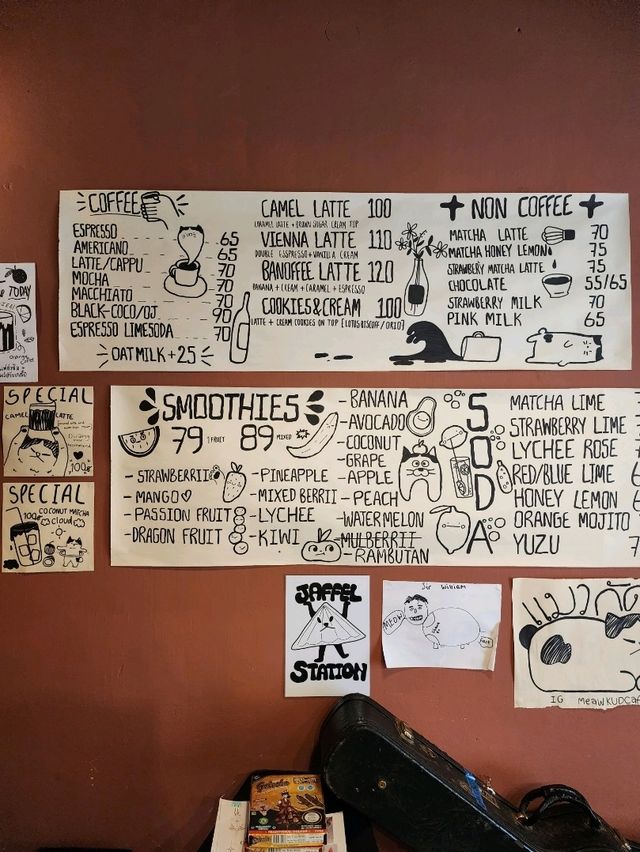 COFFEE
ESPRESSO 65
AMERICANO 65
LATTE/CAPPU 70
MOCHA 70
MACCHIATO 70
BLACK-COCO/OJ 90
ESPRESSO LIMESODA 70
OATMILK +25
CAMEL LATTE 100
CARAMEL LATTE + BROWN SUGAR CREAM TOP
VIENNA LATTE 110
DOUBLE ESSPRESSO + VANILLA CREAM
BANOFFEE LATTE 120
BANANA + CREAM + CARAMEL + ESPRESSO
COOKIES & CREAM 100
LATTE + CREAM COOKIES ON TOP (LOTUS BISCOFF / OREO)
NON COFFEE
MATCHA LATTE 70
MATCHA HONEY LEMON 75
STRAWBERRY MATCHA LATTE 75
CHOCOLATE 55/65
STRAWBERRY MILK 70
PINK MILK 65
TODAY
SPECIAL
CAMEL LATTE
100฿
SPECIAL
100฿ COCONUT MATCHA
cloud
SMOOTHIES
79 1 FRUIT 89 MIXED
- STRAWBERRII
- MANGO
- PASSION FRUIT
- DRAGON FRUIT
- PINEAPPLE
- MIXED BERRII
- LYCHEE
- KIWI
- BANANA
- AVOCADO
- COCONUT
- GRAPE
- APPLE
- PEACH
- WATERMELON
- MULBERRII
- RAMBUTAN
SODA
MATCHA LIME
STRAWBERRY LIME
LYCHEE ROSE
RED/BLUE LIME
HONEY LEMON
ORANGE MOJITO
YUZU
JAFFEL
STATION
Sir William
MEOW
แมวกัด
IG meawKUDCaf